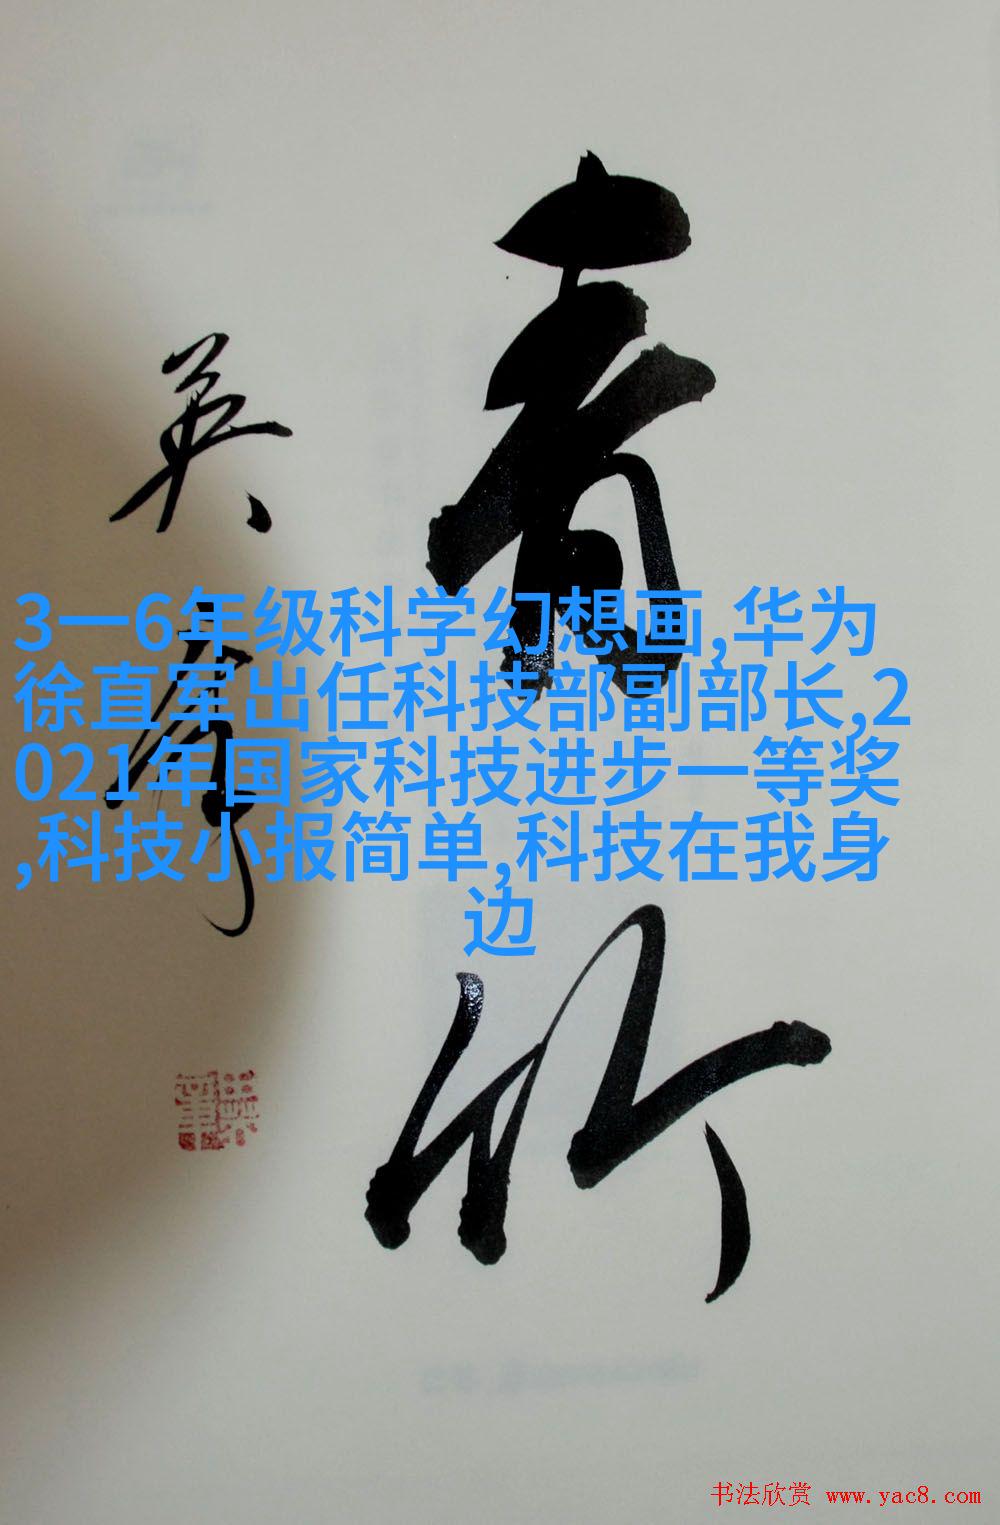 青竹
英
3一6年级科学幻想画,华为
徐直军出任科技部副部长,2
021年国家科技进步一等奖
,科技小报简单,科技在我身
边
书法欣赏 www.yac8.com